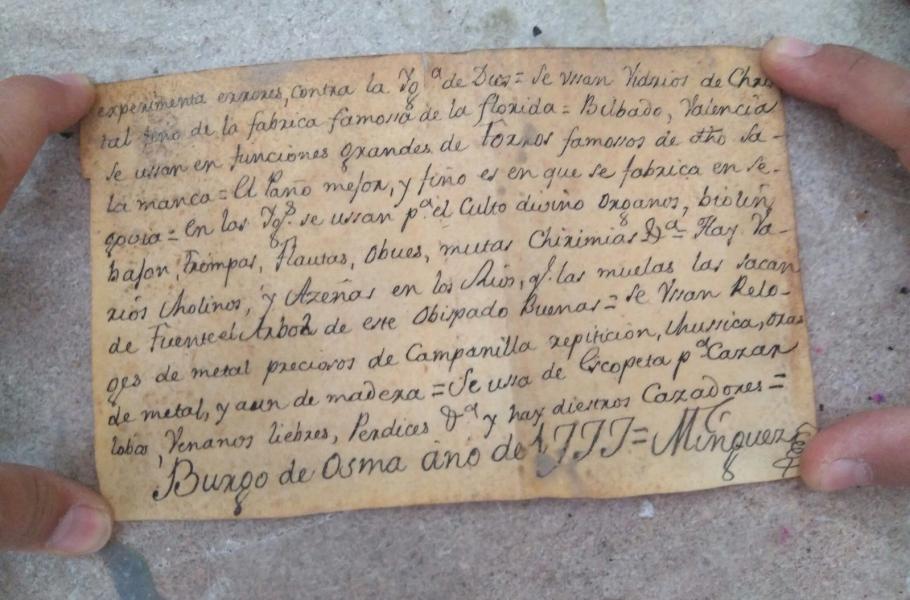 experimenta errores, contra la Yg.ª de Dios = Se vsan Vidrios de Chris
tal fino de la fabrica famossa de la florida = Bilbado, Valencia
se ussan en funciones grandes de torros famossos de dho Sa-
lamanca = El Paño mejor, y fiño es en que se fabrica en Se-
govia = en las Yg.s se ussan p.ª el Culto diviño Organos, biolin,
bajon, trompas, Flautas, obues, mutas Chirimias &ª = Hay Va-
rios Molinos, y Azeñas en los Rios, q.e las muelas las sacan
de Fuente el Arbol de este Obispado Buenas = Se Vsan Relo-
ges de metal preciosos de Campanilla repiticion, Mussica, oras
de metal, y aun de madera = Se ussa de Escopeta p.ª Cazar
lobos, Venanos liebres, Perdices &ª y hay diestros Cazadores =
Burgo de Osma año de 1777 = Minguez